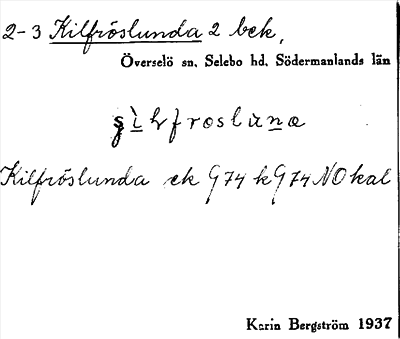 2-3 Kilfröslunda 2 bek,
Överselö sn, Selebo hd, Södermanlands län
Kilfröslunda ek G 74 k G 74 NO kal
Karin Bergström 1937